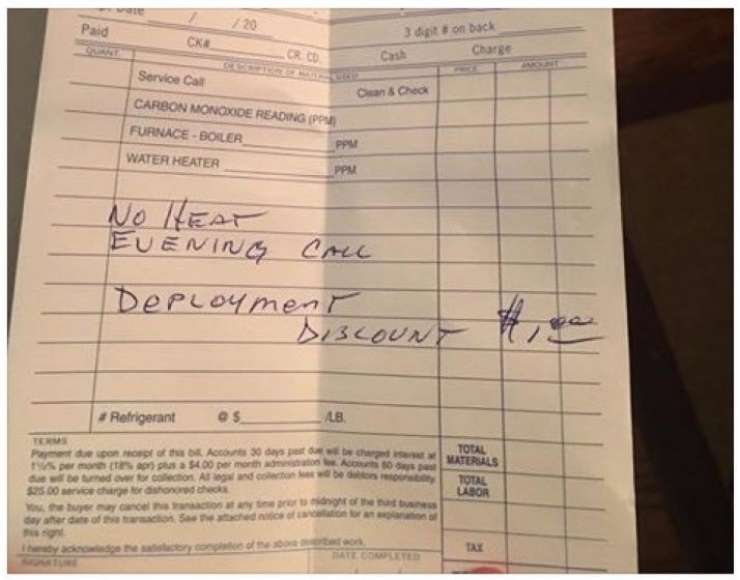 / / 20
3 digit # on back
Paid CK# CR. CD. Cash Charge
QUANT. DESCRIPTION OF MATERIAL USED PRICE AMOUNT
Service Call Clean & Check
CARBON MONOXIDE READING (PPM)
FURNACE - BOILER PPM
WATER HEATER PPM
NO HEAT
EVENING CALL
DEPLOYMENT
DISCOUNT
# Refrigerant @ $ /LB.
TERMS
Payment due upon receipt of this bill. Accounts 30 days past due will be charged interest at
1½% per month (18% apr) plus a $4.00 per month administration fee. Accounts 60 days past
due will be turned over for collection. All legal and collection fees will be debtors responsibility.
$25.00 service charge for dishonored checks.
You, the buyer may cancel this transaction at any time prior to midnight of the third business
day after date of this transaction. See the attached notice of cancellation for an explanation of
this right.
I hereby acknowledge the satisfactory completion of the above described work.
SIGNATURE DATE COMPLETED
TOTAL
MATERIALS
TOTAL
LABOR
TAX